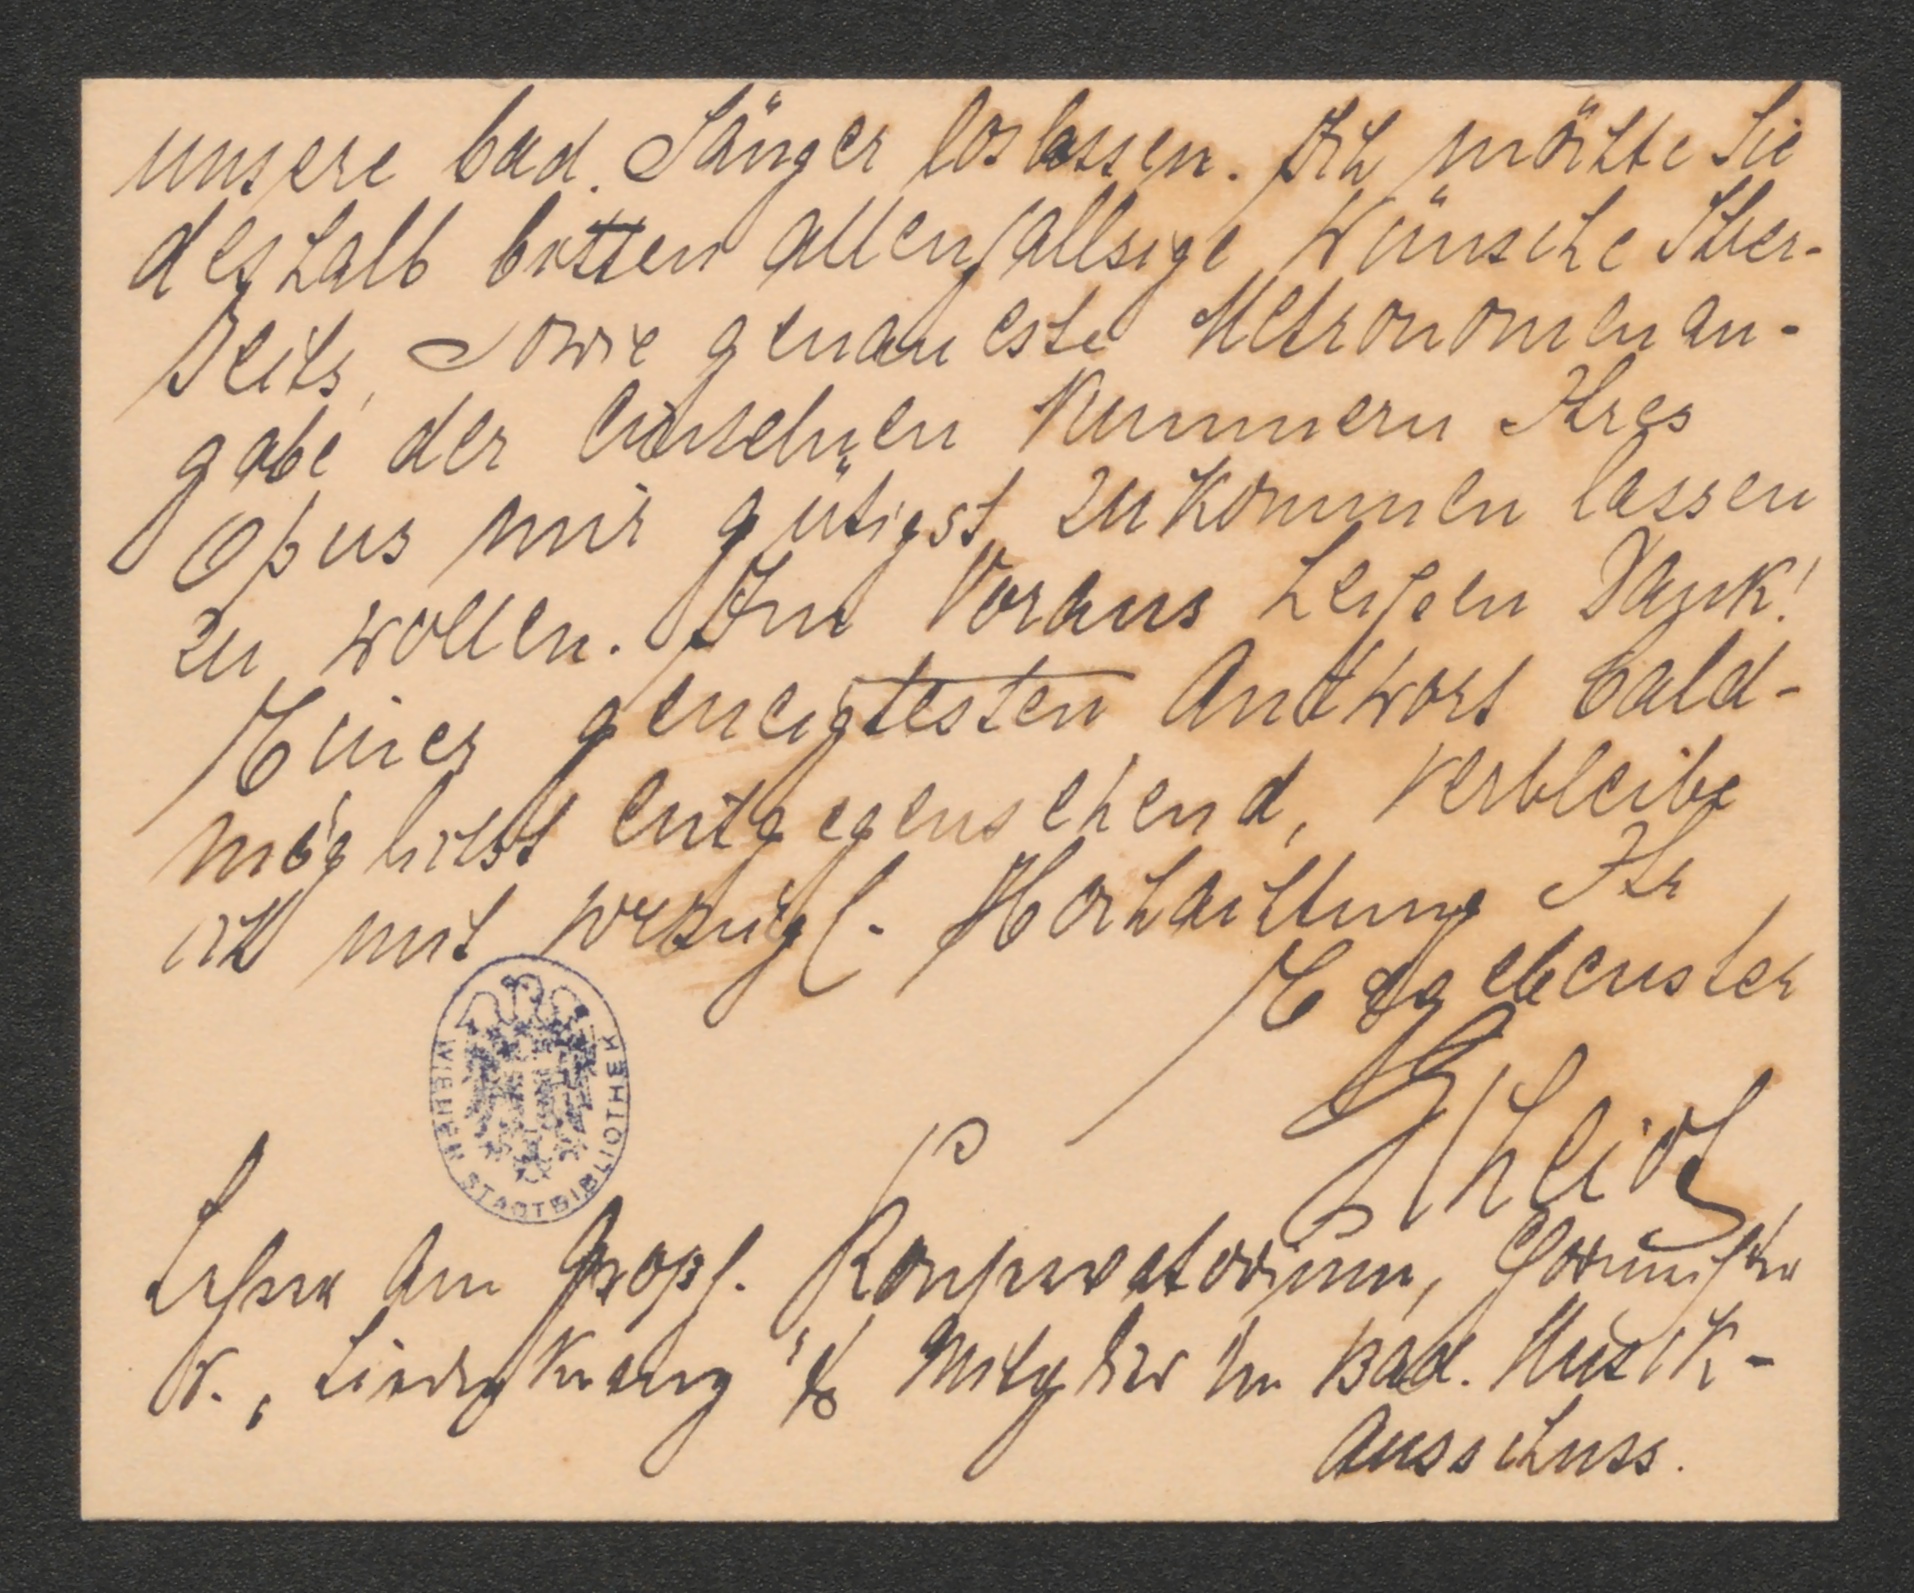 unsere bad. Sänger loslassen. Ich möchte Sie
deshalb bitten allenfallsige Wünsche Ihrer-
seits, sowie genaueste Metronomenan-
gabe der einzelnen Nummern Ihres
Opus mir gütigst zukommen lassen
zu wollen. Im Voraus heißen Dank!
Einer geneigtesten Antwort bald-
möglichst entgegensehend, verbleibe
ich mit vorzügl. Hochachtung Ihr
Ergebenster
Lehrer am Großh. Konservatorium, Chormeister
d. „Liederkranz" & Mitglied im Bad. Musik-
ausschuss.
WIENER STADTBIBLIOTHEK